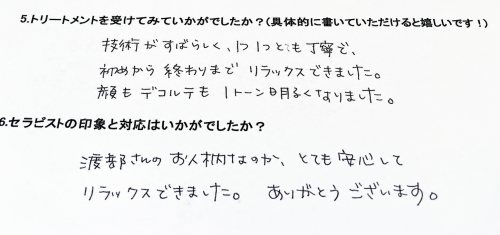 5.トリートメントを受けてみていかがでしたか？(具体的に書いていただけると嬉しいです！)
技術がすばらしく、1つ1つとても丁寧で、
初めから終わりまでリラックスできました。
顔もデコルテも1トーン明るくなりました。
6.セラピストの印象と対応はいかがでしたか？
渡部さんのお人柄なのか、とても安心して
リラックスできました。ありがとうございます。